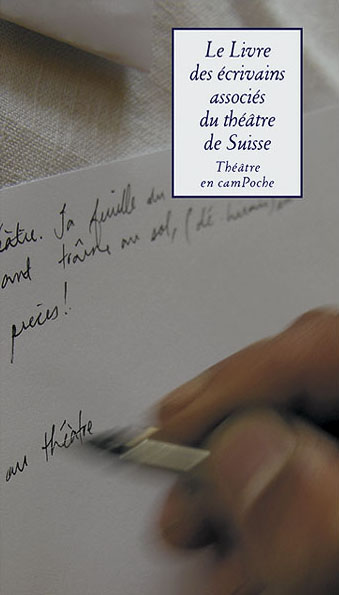 Le Livre
des écrivains
associés
du théâtre
de Suisse
Théâtre
en camPoche
âtre. Ta feuille du
ant traîne au sol, (dé
pièces!
au théâtre